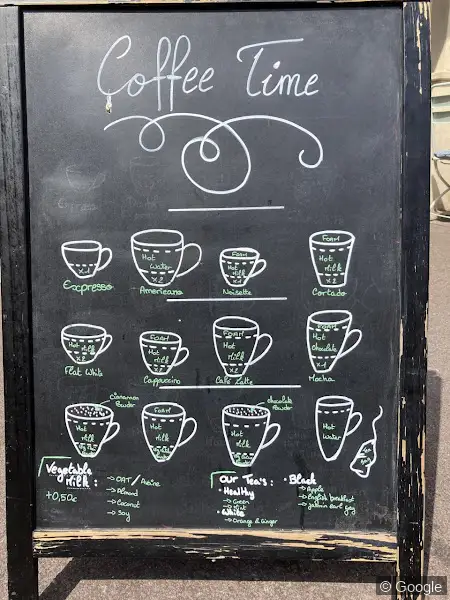 Coffee Time
x1
Expresso
Hot
Water
x2
Americano
FOAM
Hot
Milk
x1
Noisette
FOAM
Hot
Milk
x2
Cortado
Hot Milk
x2
Flat White
FOAM
Hot
Milk
x1
Cappuccino
FOAM
Hot
Milk
x2
Café Latte
FOAM
Hot
chocolate
Milk
x1
Mocha
Cinnamon
Powder
Hot
Milk
FOAM
Hot
Milk
chocolate
Powder
Hot
Milk
Hot
Water
Vegetable
Milk :
+0,50€
→ OAT / Avoine
→ Almond
→ Coconut
→ Soy
Our Tea's :
• Healthy
→ Green
→ Mint
• White
→ Orange & Ginger
• Black
→ Apple
→ English breakfast
→ Jasmin earl grey
© Google